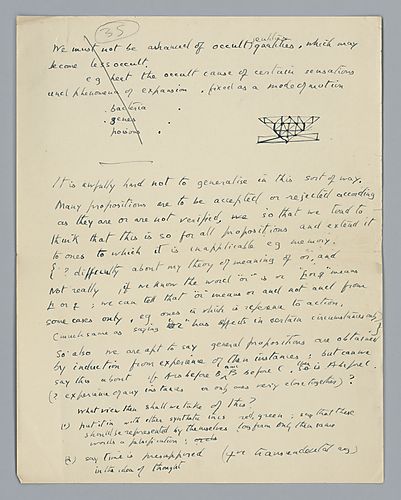 35
entities
We must not be ashamed of occult qualities, which may
become less occult.
e g heat the occult cause of certain sensations
and phenomena of expansion, fixed as a mode of motion
bacteria "
genes "
poisons "
It is awfully hard not to generalise in this sort of way.
Many propositions are to be accepted or rejected according
as they are or are not verified, so that we tend to
think that this is so for all propositions and extend it
to ones to which it is inapplicable eg memory.
{ ? difficulty about my theory of meaning of or, and
Not really, if we know the word 'or' is 'p or q' means
p or q; we can tell that or means or and not and from
some cases only, eg ones in which is reference to action,
(much same as saying has effects in certain circumstances only)}
So also we are apt to say general propositions are obtained
by induction from experience of their instances; but can we
say this about if A is before B and B before C, then A is before C.
(? experience of any instances or only ones very close together)?
What view then shall we take of this?
(1) put it in with other synthetic incs red, green; say that these
should be represented by themselves
world's a falsification;
(2) say time is presupposed (for transcendental arg)
in the idea of thought